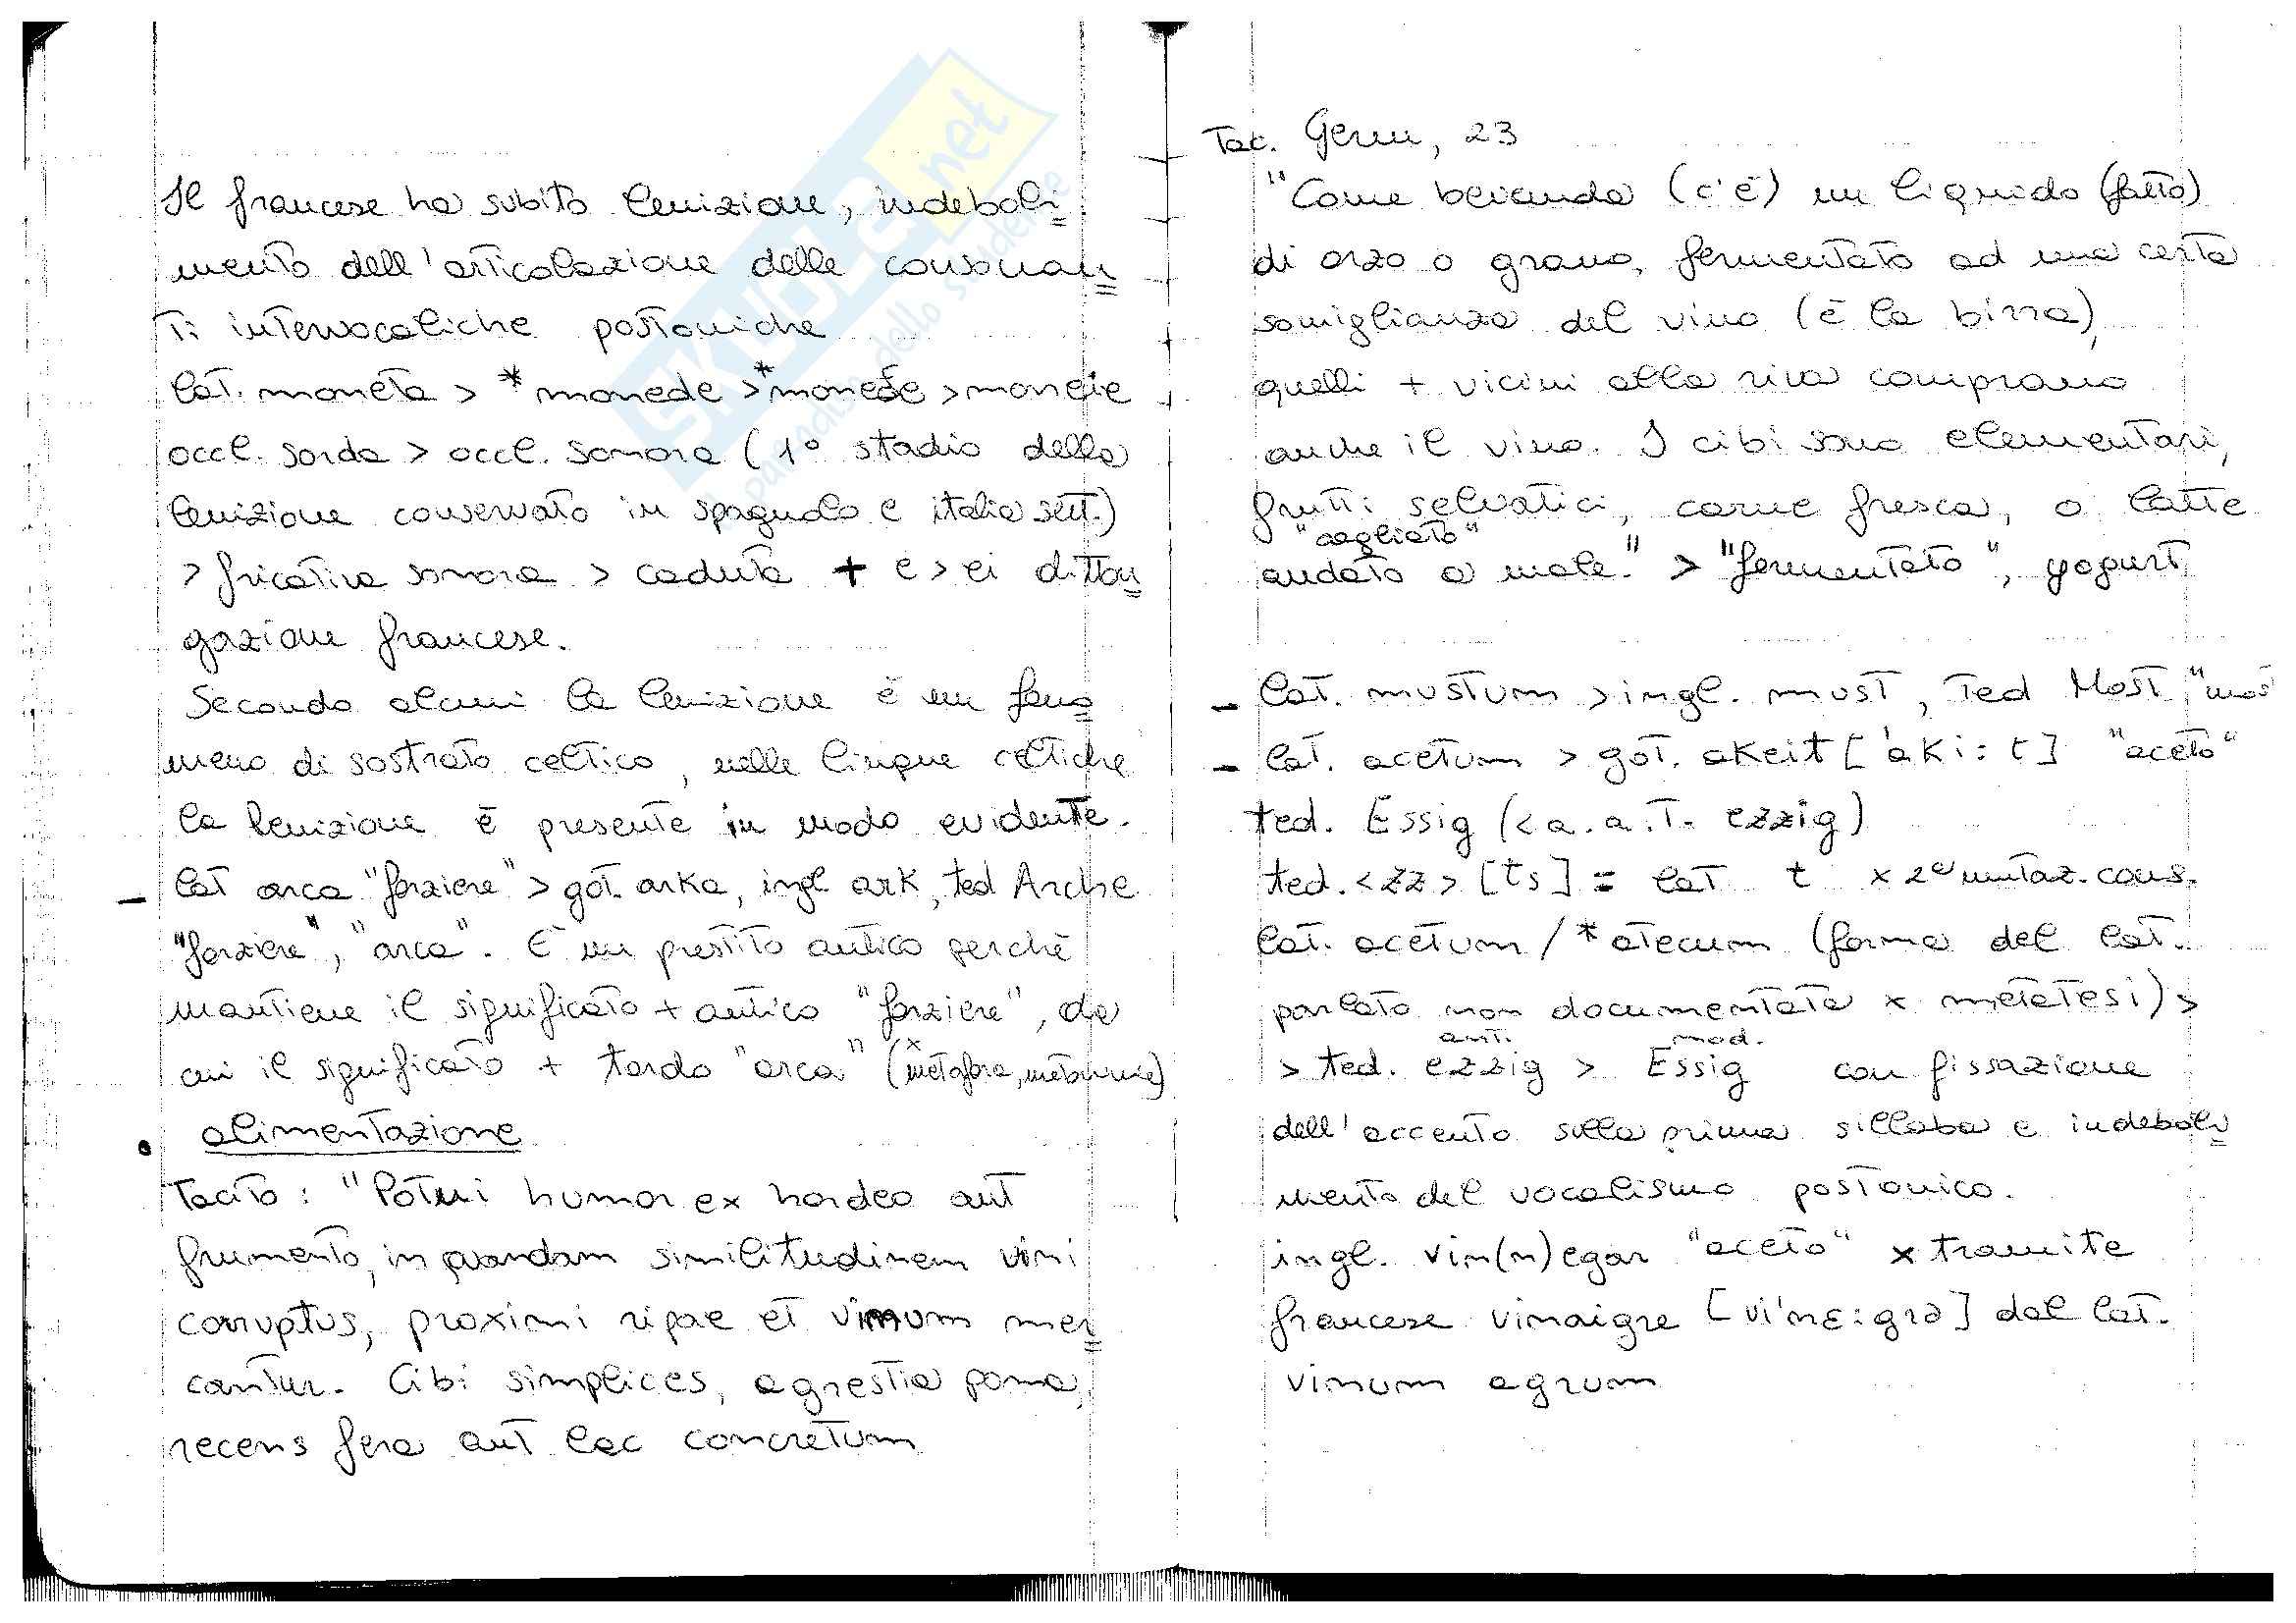 Il francese ha subito lenizione, indeboli
mento dell'articolazione delle consonan
ti intervocaliche postoniche
lat. moneta > *monede > *monede > moneie
occl. sorda > occl. sonora (1° stadio della
lenizione conservato in spagnolo e italia sett.)
> fricativa sonora > caduta + e > ei ditton
gazione francese.
Secondo alcuni la lenizione è un feno
meno di sostrato celtico, nelle lingue celtiche
la lenizione è presente in modo evidente.
- lat arca "forziere" > got. arka, ingl. ark, ted Arche
"forziere", "arca". È un prestito antico perché
mantiene il significato + antico "forziere", da
cui il significato + tardo "arca" (x metafora, metonimia)
• alimentazione
Tacito: "Potui humor ex hordeo aut
frumento, in quandam similitudinem vini
corruptus, proximi ripae et vinum mer
cantur. Cibi simplices, agrestia poma,
recens fera aut lac concretum
Tac. Germ, 23
"Come bevanda (c'è) un liquido (fatto)
di orzo o grano, fermentato ad una certa
somiglianza del vino (è la birra),
quelli + vicini alla riva comprano
anche il vino. I cibi sono elementari,
frutti selvatici, carne fresca, o latte
"cagliato"
andato a male." > "fermentato", yogurt
- lat. mustum > ingl. must, ted Most, "mos
- lat. acetum > got. akeit ['aki:t] "aceto"
ted. Essig (< a.a.t. ezzig)
ted. <zz> [ts] = lat t x 2a mutaz. cons.
lat. acetum / *atecum (forma del lat.
parlato non documentata x metatesi) >
ant. mod.
> ted. ezzig > Essig con fissazione
dell'accento sulla prima sillaba e indeboli
mento del vocalismo postonico.
ingl. vin(n)egar "aceto" x tramite
francese vinaigre [vi'nɛ:grə] dal lat.
vinum agrum
SKUOLA.net
paradiso dello studente